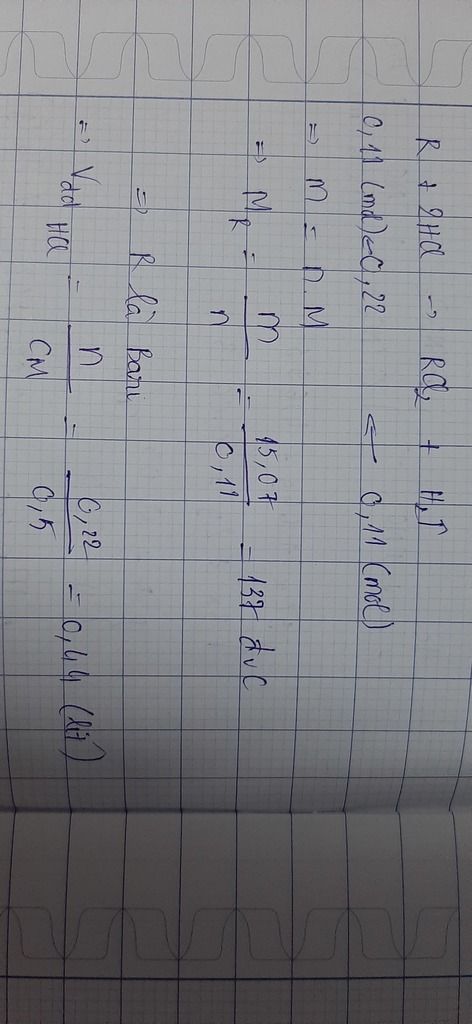 R + 2HCl → RCl₂ + H₂↑
0,11 (mol) ← 0,22 ← 0,11 (mol)
=> m = n.M
=> M_R = m/n = 15,07/0,11 = 137 đvC
=> R là Bari
=> Vdd HCl = n/CM = 0,22/0,5 = 0,44 (lít)